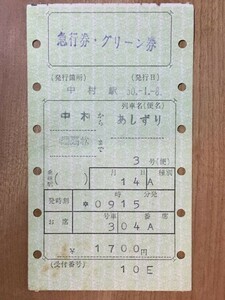 急行券・グリーン券
(発行箇所) (発行日)
中村駅 50.-1.-6.
列車名(便名)
中村から あしずり
まで
3号(便)
乗車駅( ) 月 日 種別
14A
時 分発
発時刻 *0915
号車 番 席
座席 304A
¥ 1700円
(受付番号) 10E